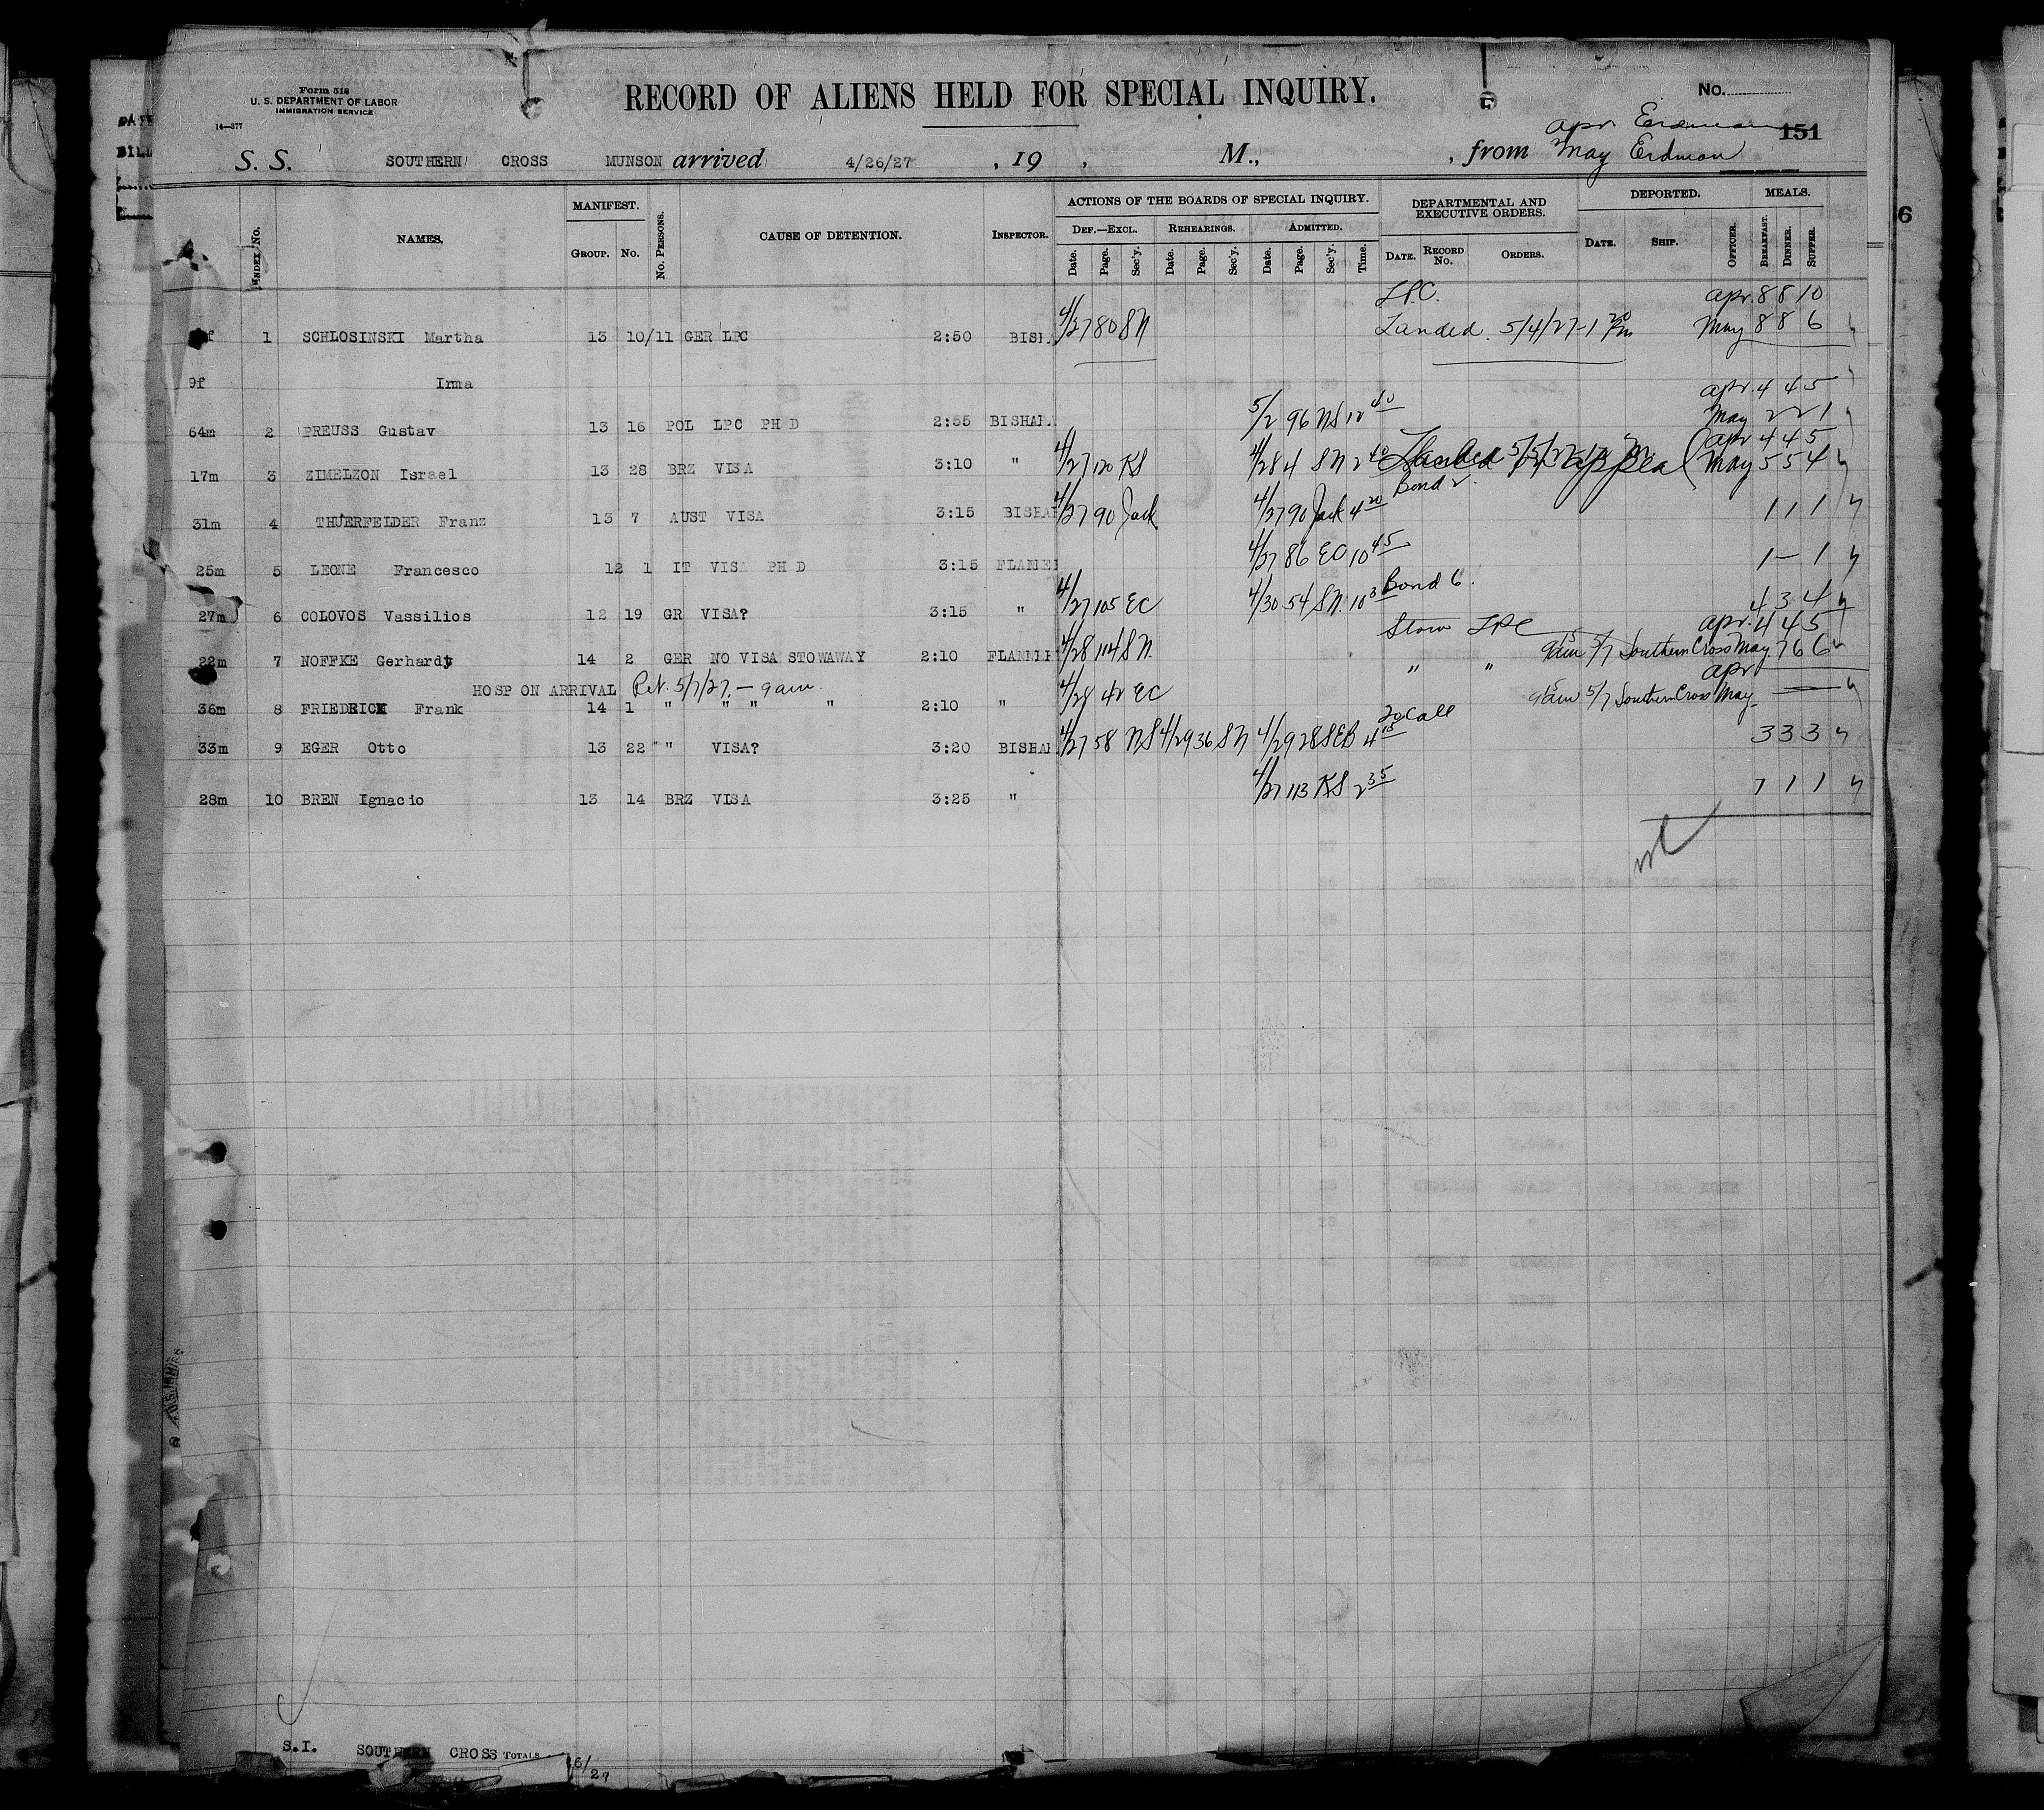 Form 518
U. S. DEPARTMENT OF LABOR
IMMIGRATION SERVICE
14—377
RECORD OF ALIENS HELD FOR SPECIAL INQUIRY.
No.
151
Apr. Erdman
S. S. SOUTHERN CROSS MUNSON arrived 4/26/27, 19 , M., , from May Erdman
INDEX No. NAMES. MANIFEST. GROUP. No. No. PERSONS. CAUSE OF DETENTION. INSPECTOR. ACTIONS OF THE BOARDS OF SPECIAL INQUIRY. DEF.—EXCL. Date. Page. Sec'y. REHEARINGS. Date. Page. Sec'y. ADMITTED. Date. Page. Sec'y. Time. DEPARTMENTAL AND EXECUTIVE ORDERS. DATE. RECORD No. ORDERS. DEPORTED. DATE. SHIP. OFFICER. MEALS. BREAKFAST. DINNER. SUPPER.
LPC. Apr. 8 8 10
f 1 SCHLOSINSKI Martha 13 10/11 GER LPC 2:50 BISHA 4/27 80 SN Landed 5/4/27-1 20 Pm May 8 8 6
9f Irma
Apr. 4 4 5
64m 2 PREUSS Gustav 13 16 POL LPC PH D 2:55 BISHAR 5/2 96 NS 10 40 May 2 2 1
Apr 4 4 5
17m 3 ZIMELZON Israel 13 28 BRZ VISA 3:10 " 4/27 120 KS 4/28 4 SN 2 40 May 5 5 4
Bond 2.
31m 4 THUERFELDER Franz 13 7 AUST VISA 3:15 BISHAR 4/27 90 Jack 4/27 90 Jack 4 20 1 1 1
25m 5 LEONE Francesco 12 1 IT VISA PH D 3:15 FLANNE 4/27 86 EC 10 45 1 — 1
27m 6 COLOVOS Vassilios 12 19 GR VISA? 3:15 " 4/27 105 EC 4/30 54 SN 10 3 Bond 6. 4 3 4
Stow LPC Apr. 4 4 5
22m 7 NOFFKE Gerhardt 14 2 GER NO VISA STOWAWAY 2:10 FLANNER 4/28 114 SN 9 15 am 5/7 Southern Cross May 7 6 6
HOSP ON ARRIVAL Ret. 5/7/27. — 9 am. " " Apr
36m 8 FRIEDRICH Frank 14 1 " " " " 2:10 " 4/28 42 EC 9 15 am 5/7 Southern Cross May —
To Call
33m 9 EGER Otto 13 22 " VISA? 3:20 BISHAR 4/27 58 NS 4/29 36 SN 4/29 28 SEB 4 15 3 3 3
28m 10 BREN Ignacio 13 14 BRZ VISA 3:25 " 4/27 113 KS 2 35 1 1 1
S.I. SOUTHERN CROSS TOTALS 6/27